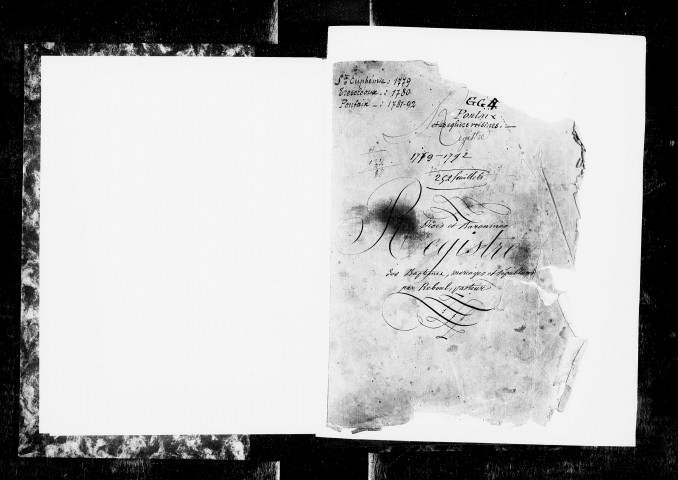 Ste Euphémie : 1779
Trescléoux - : 1780
Pontaix - : 1781-92
GG4
Pontaix
et églises voisines. -
Registre
1779-1792
252 feuillets
Diois et Baronnies
Registre
des Baptêmes, mariages et sépultures
par Reboul, pasteur